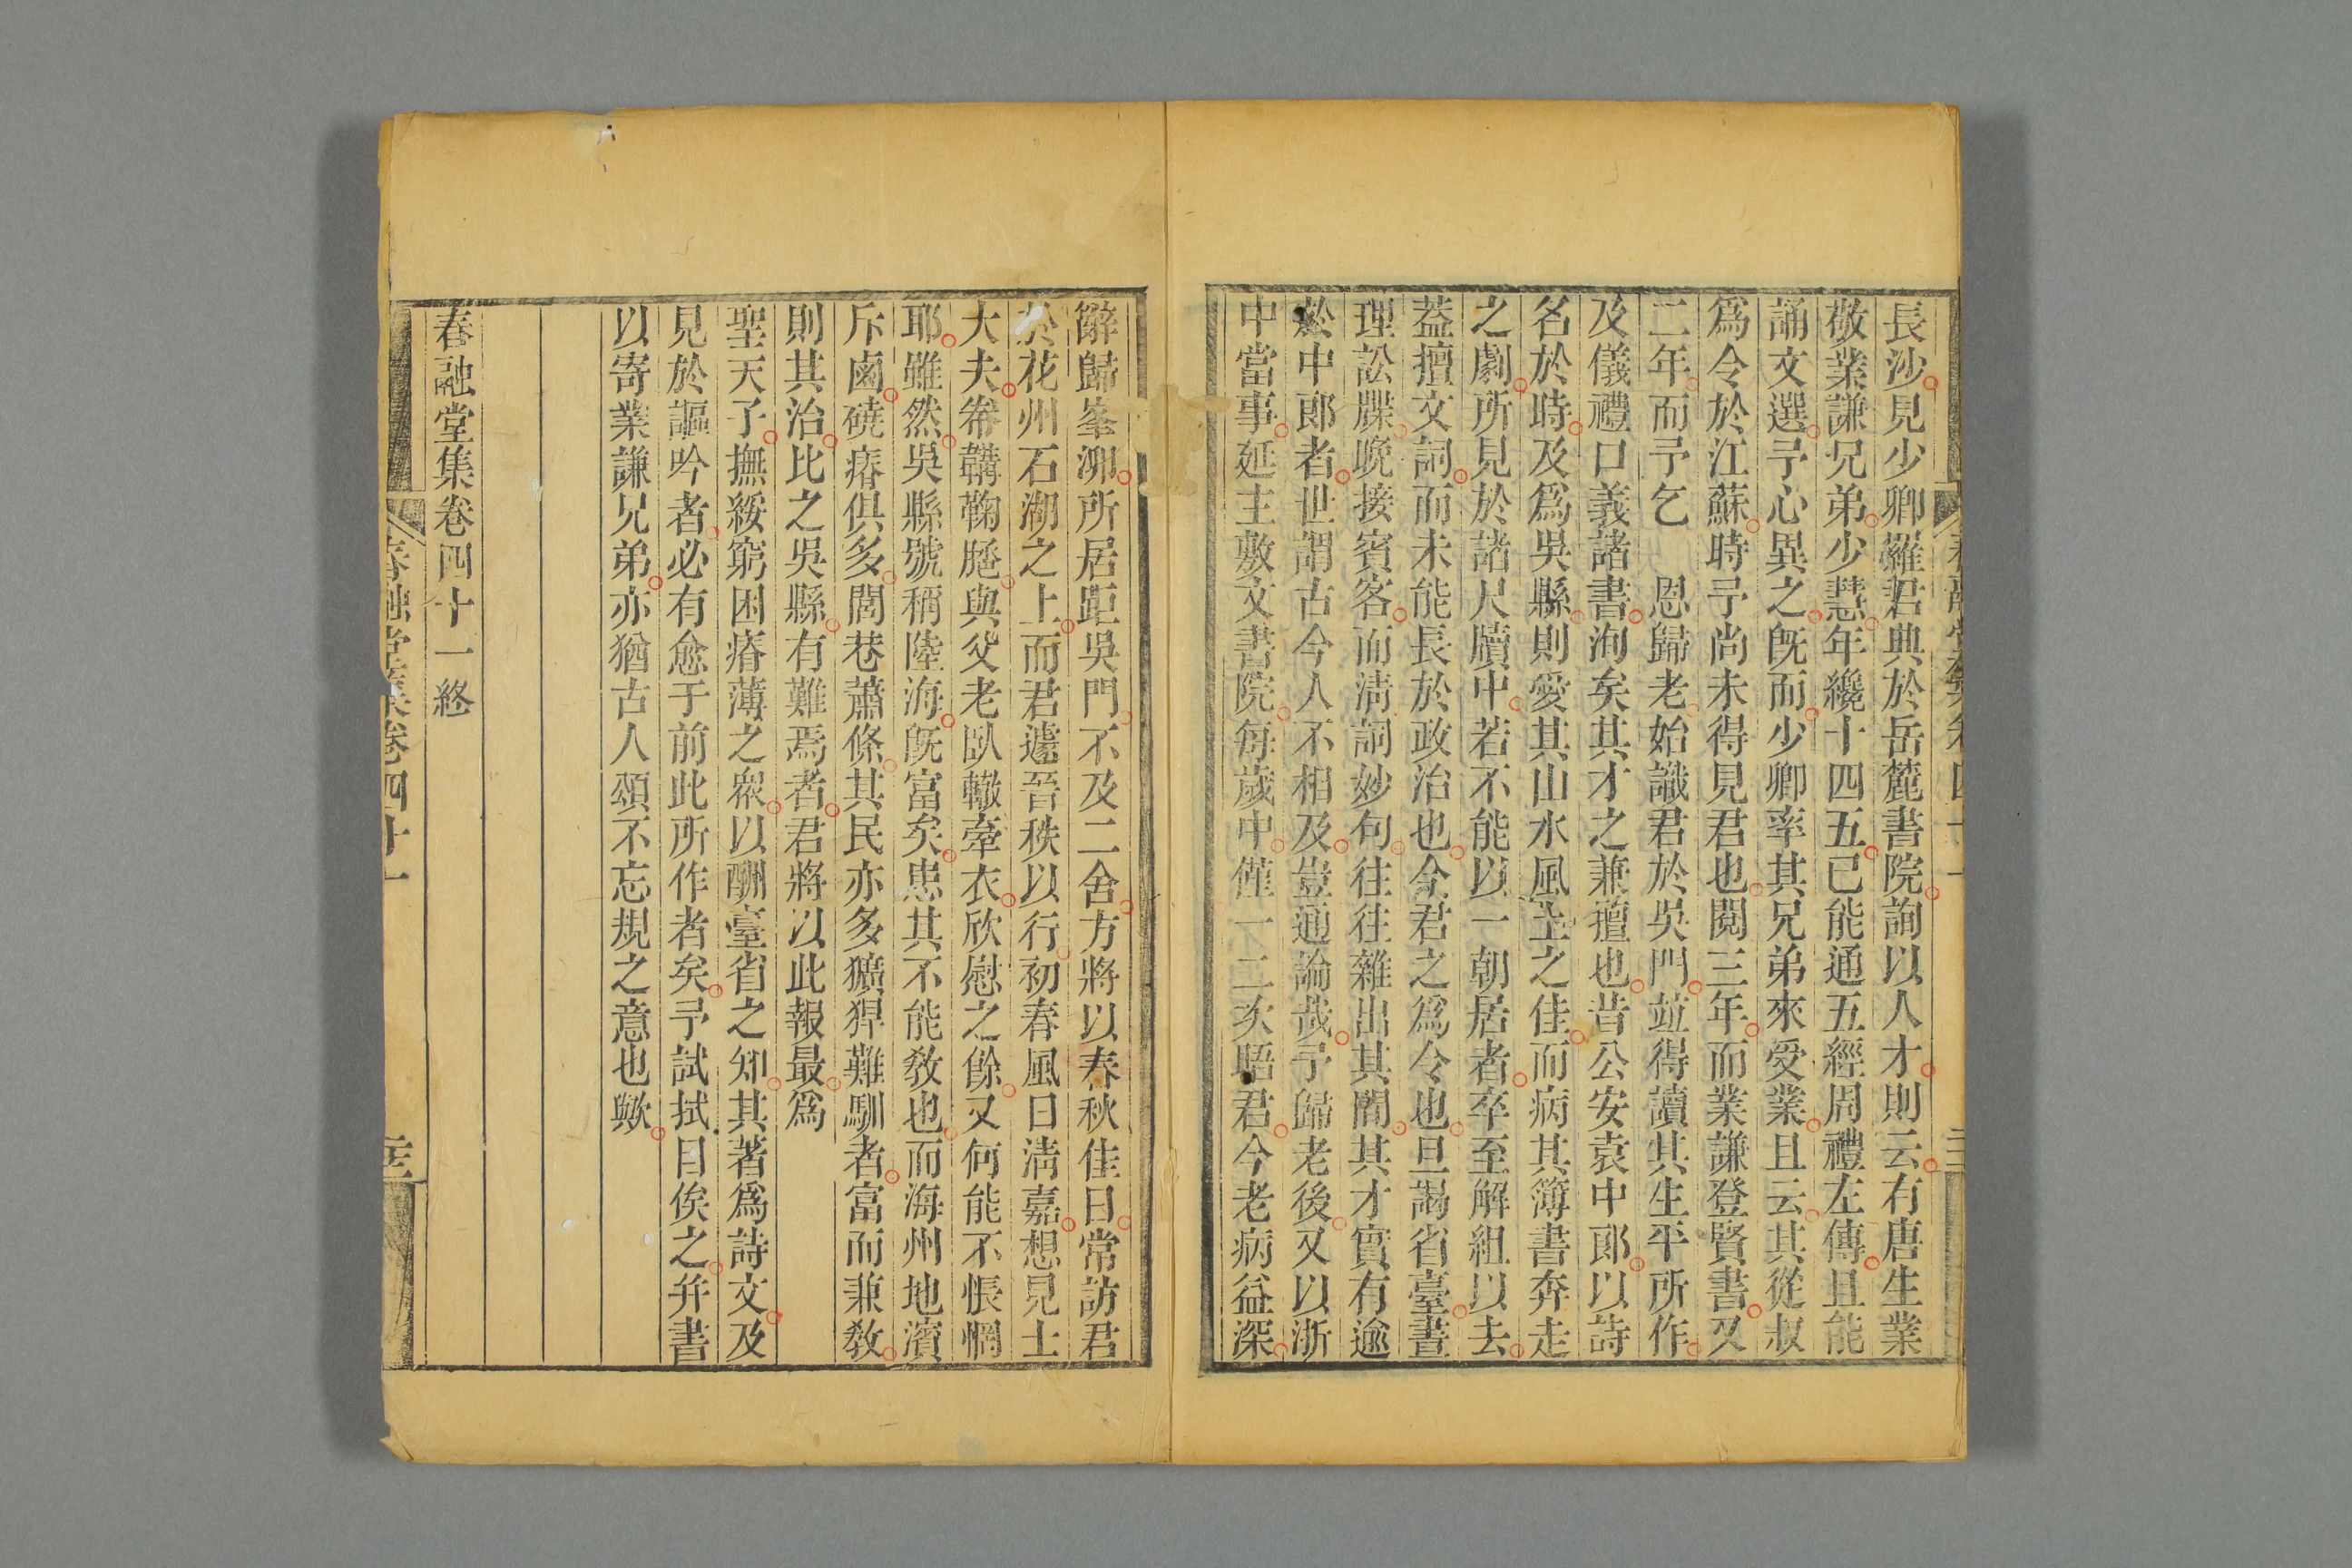 長沙見少卿羅君典於岳麓書院詢以人才則云有唐生業
敬業謙兄弟少慧年纔十四五已能通五經周禮左傳且能
誦文選予心異之旣而少卿率其兄弟來受業且云其從叔
爲令於江蘇時予尚未得見君也閱三年而業謙登賢書又
二年而予乞　恩歸老始識君於吳門竝得讀其生平所作
及儀禮口義諸書洵矣其才之兼擅也昔公安袁中郎以詩
名於時及爲吳縣則愛其山水風土之佳而病其簿書奔走
之劇所見於諸尺牘中若不能以一朝居者卒至解組以去
蓋擅文詞而未能長於政治也今君之爲令也旦謁省臺晝
理訟牒晚接賓客而淸詞妙句往往雜出其閒其才實有逾
於中郎者世謂古今人不相及豈通論哉予歸老後又以浙
中當事延主敷文書院每歲中僅一二次晤君今老病益深
辭歸峯泖所居距吳門不及二舍方將以春秋佳日常訪君
於花州石湖之上而君遽晉秩以行初春風日淸嘉想見士
大夫帣韝鞠𨄔與父老臥轍牽衣欣慰之餘又何能不悵惘
耶雖然吳縣號稱陸海旣富矣患其不能敎也而海州地濱
斥鹵磽瘠俱多閭巷蕭條其民亦多獷猂難馴者富而兼敎
則其治比之吳縣有難焉者君將以此報最爲
聖天子撫綏窮困瘠薄之衆以酬臺省之知其著爲詩文及
見於謳吟者必有愈于前此所作者矣予試拭目俟之幷書
以寄業謙兄弟亦猶古人頌不忘規之意也歟
春融堂集卷四十一終
春融堂集卷四十一